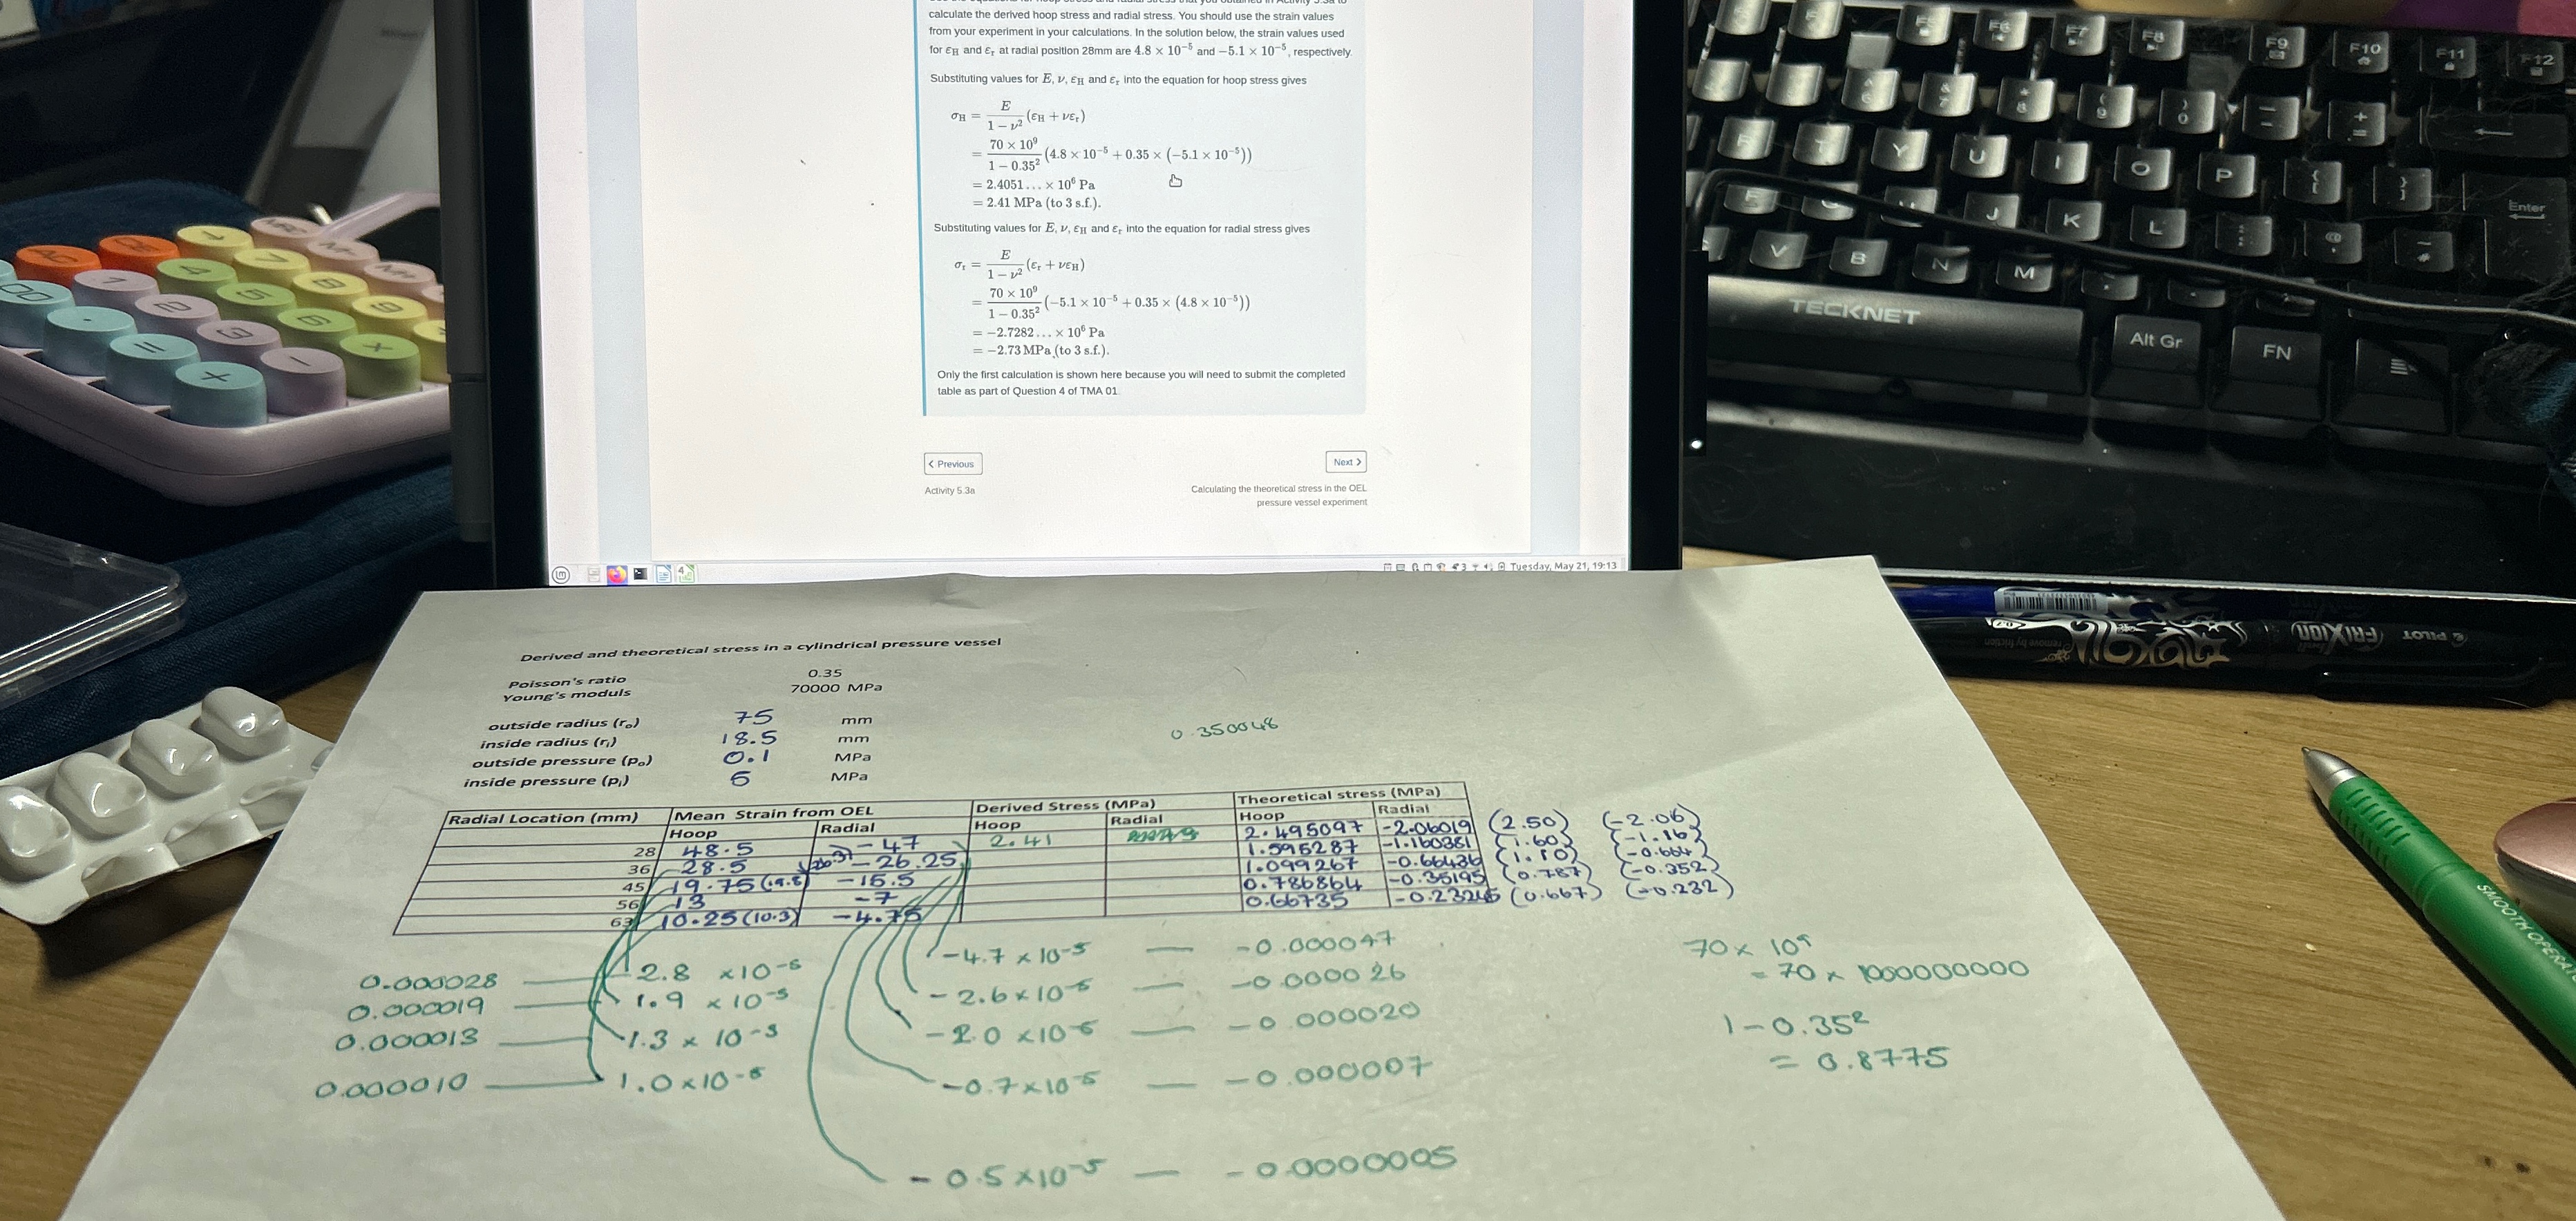 calculate the derived hoop stress and radial stress. You should use the strain values
from your experiment in your calculations. In the solution below, the strain values used
for εH and εr at radial position 28mm are 4.8 × 10⁻⁵ and −5.1 × 10⁻⁵, respectively.
Substituting values for E, ν, εH and εr into the equation for hoop stress gives
σH = E / (1 − ν²) (εH + νεr)
= 70 × 10⁹ / (1 − 0.35²) (4.8 × 10⁻⁵ + 0.35 × (−5.1 × 10⁻⁵))
= 2.4051… × 10⁶ Pa
= 2.41 MPa (to 3 s.f.).
Substituting values for E, ν, εH and εr into the equation for radial stress gives
σr = E / (1 − ν²) (εr + νεH)
= 70 × 10⁹ / (1 − 0.35²) (−5.1 × 10⁻⁵ + 0.35 × (4.8 × 10⁻⁵))
= −2.7282… × 10⁶ Pa
= −2.73 MPa (to 3 s.f.).
Only the first calculation is shown here because you will need to submit the completed
table as part of Question 4 of TMA 01.
Previous
Next
Activity 5.3a
Calculating the theoretical stress in the OEL
pressure vessel experiment
Tuesday, May 21, 19:13
Derived and theoretical stress in a cylindrical pressure vessel
Poisson's ratio 0.35
Young's moduls 70000 MPa
outside radius (ro) 75 mm
inside radius (ri) 18.5 mm
outside pressure (po) 0.1 MPa
inside pressure (pi) 5 MPa
0.350048
Radial Location (mm) Mean Strain from OEL Derived Stress (MPa) Theoretical stress (MPa)
Hoop Radial Hoop Radial Hoop Radial
28 48.5 -47 2.41 2.495097 -2.06019 (2.50) (-2.06)
36 28.5 -26.25 1.595287 -1.160381 (1.60) (-1.16)
45 19.75 (19.8) -15.5 1.099267 -0.66436 (1.10) (-0.664)
56 13 -7 0.786864 -0.35195 (0.787) (-0.352)
63 10.25 (10.3) -4.75 0.66735 -0.23245 (0.667) (-0.232)
-4.7 × 10⁻⁵ — -0.000047
0.000028 — 2.8 × 10⁻⁵
-2.6 × 10⁻⁵ — -0.000026
0.000019 — 1.9 × 10⁻⁵
-2.0 × 10⁻⁵ — -0.000020
0.000013 — 1.3 × 10⁻⁵
-0.7 × 10⁻⁵ — -0.000007
0.000010 — 1.0 × 10⁻⁵
-0.5 × 10⁻⁵ — -0.0000005
70 × 10⁹
= 70 × 1000000000
1 − 0.35²
= 0.8775
F5
F6
F7
F8
F9
F10
F11
F12
Y U I O P
J K L
Enter
V B N M
TECKNET
Alt Gr
FN
PILOT
FRIXION
remove by friction
SMOOTH OPERA